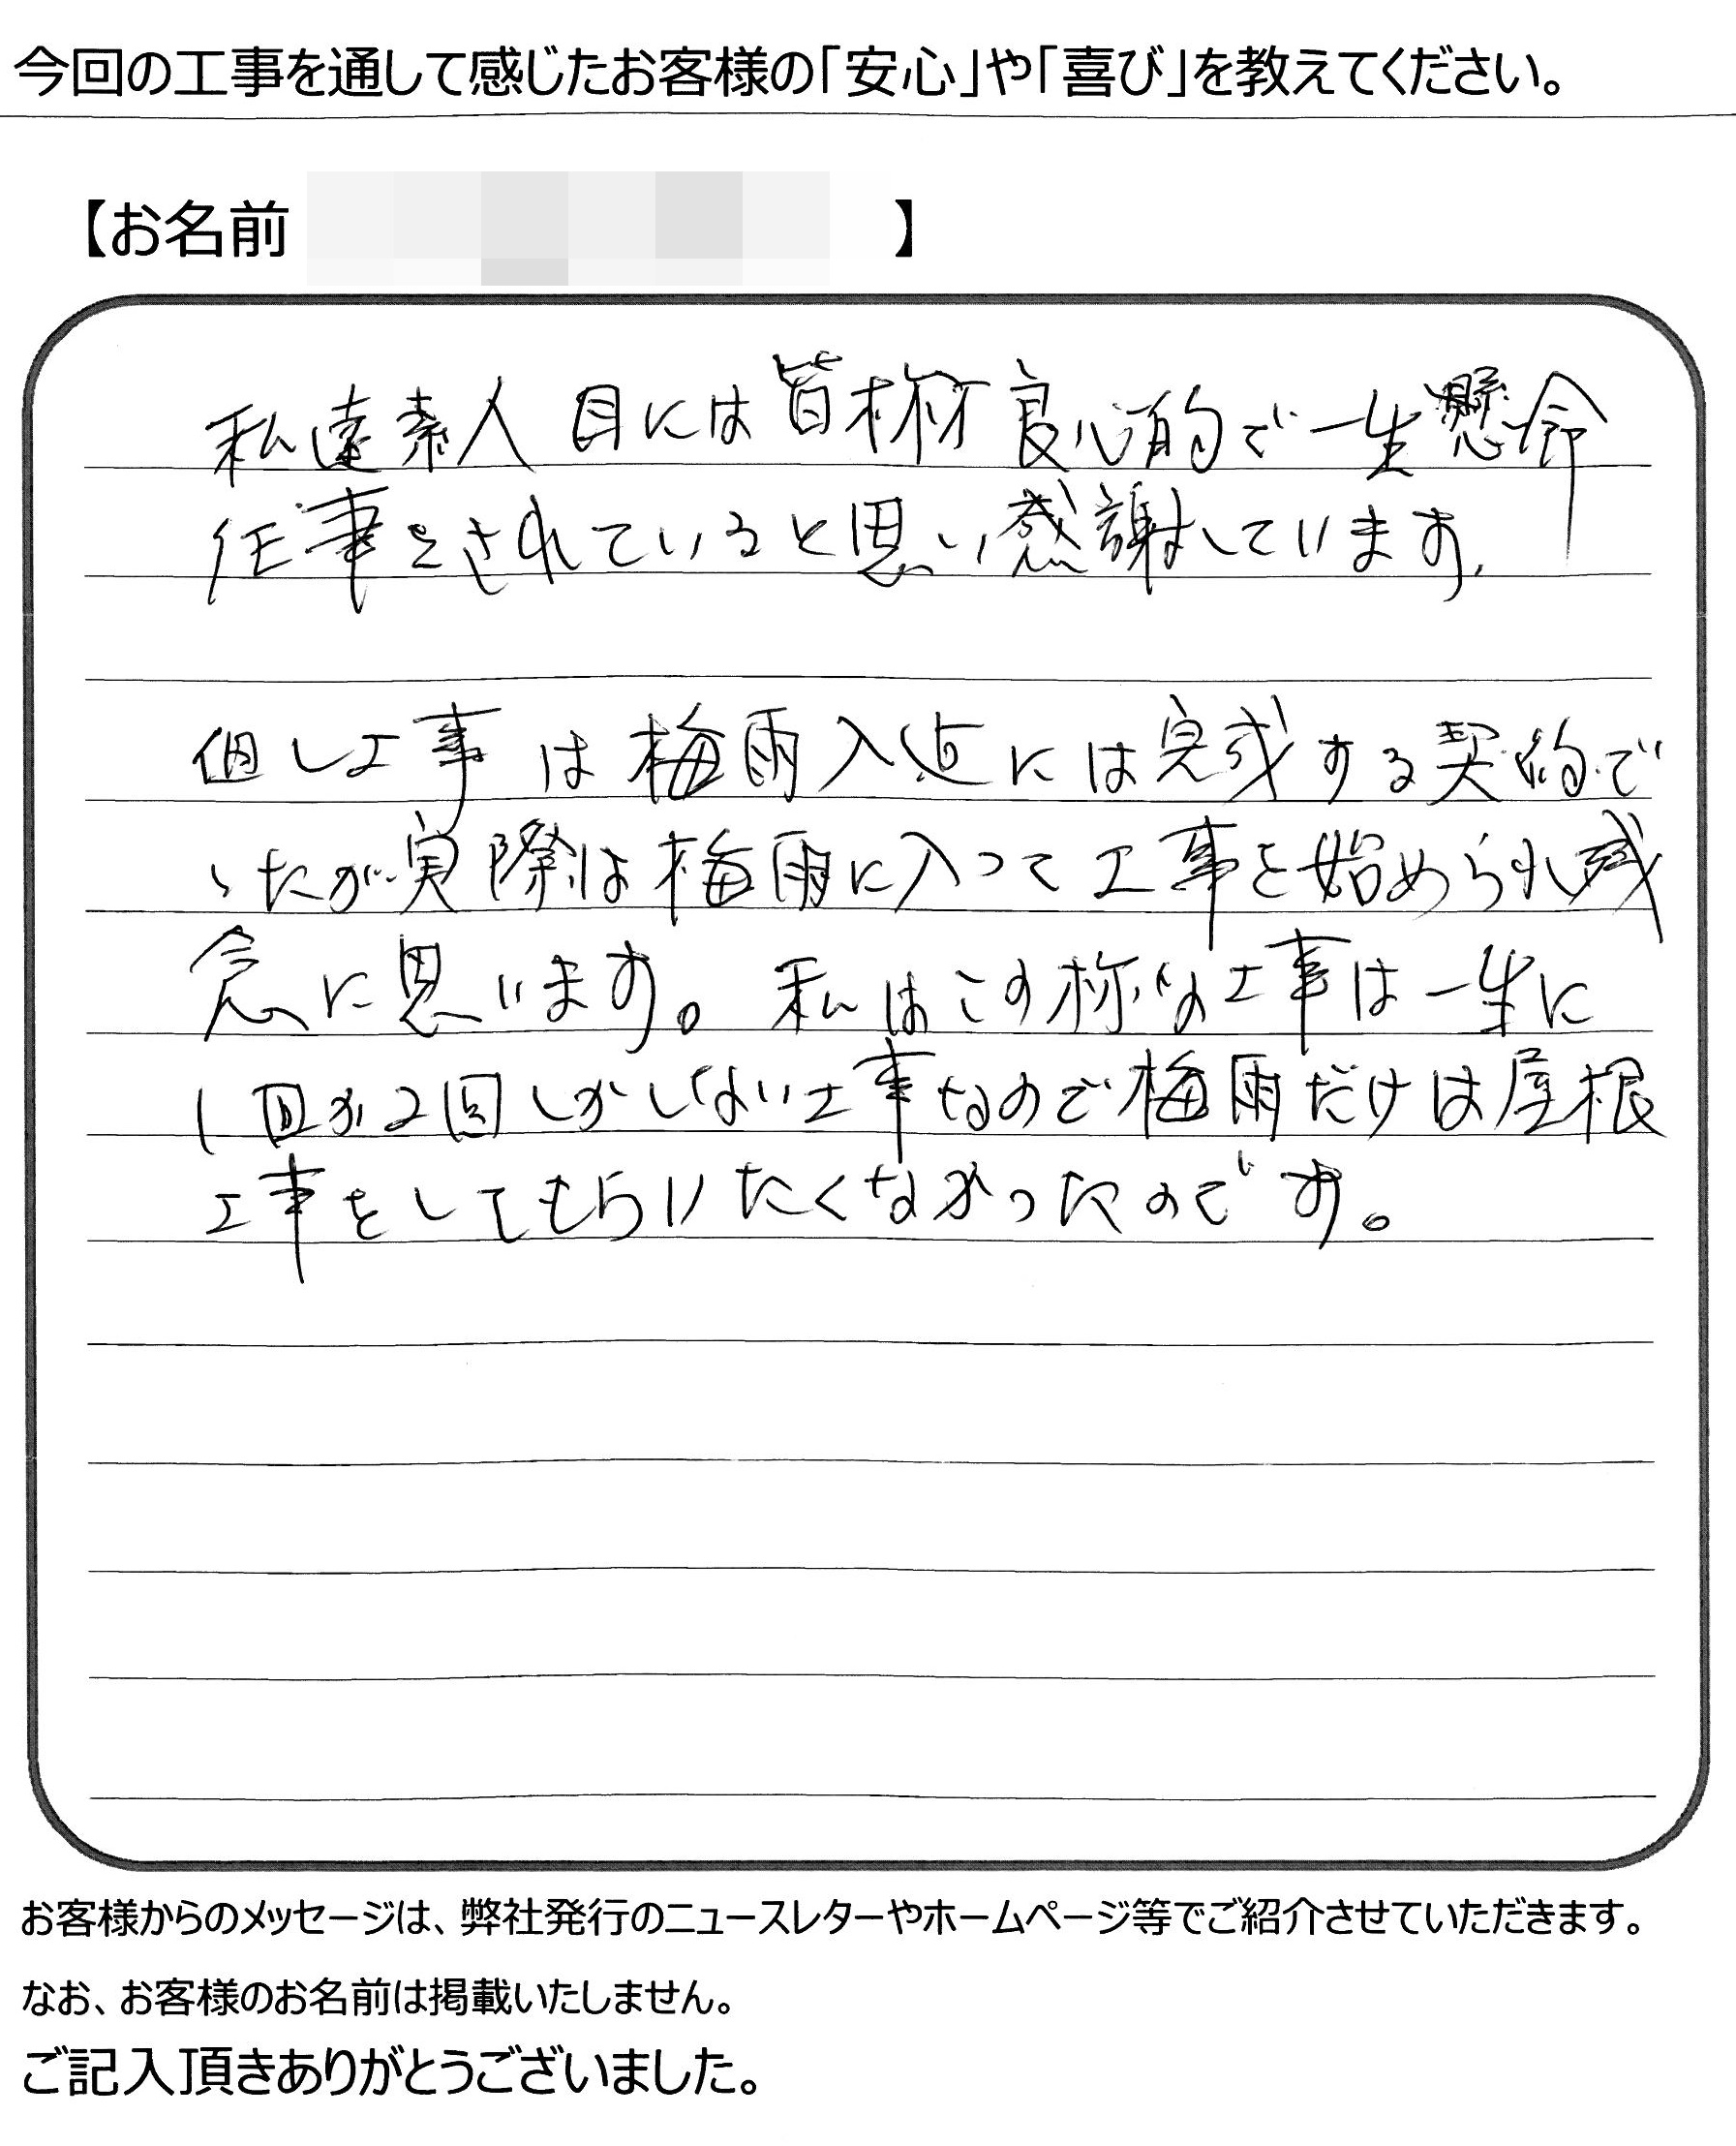 今回の工事を通して感じたお客様の「安心」や「喜び」を教えてください。
【お名前 】
私達素人目には皆様良心的で一生懸命
仕事をされていると思い感謝しています.
但し工事は梅雨入迄には完成する契約で
したが実際は梅雨に入って工事を始められ残
念に思います。私はこの様な工事は一生に
1回か2回しかしない工事なので梅雨だけは屋根
工事をしてもらいたくなかったのです。
お客様からのメッセージは、弊社発行のニュースレターやホームページ等でご紹介させていただきます。
なお、お客様のお名前は掲載いたしません。
ご記入頂きありがとうございました。